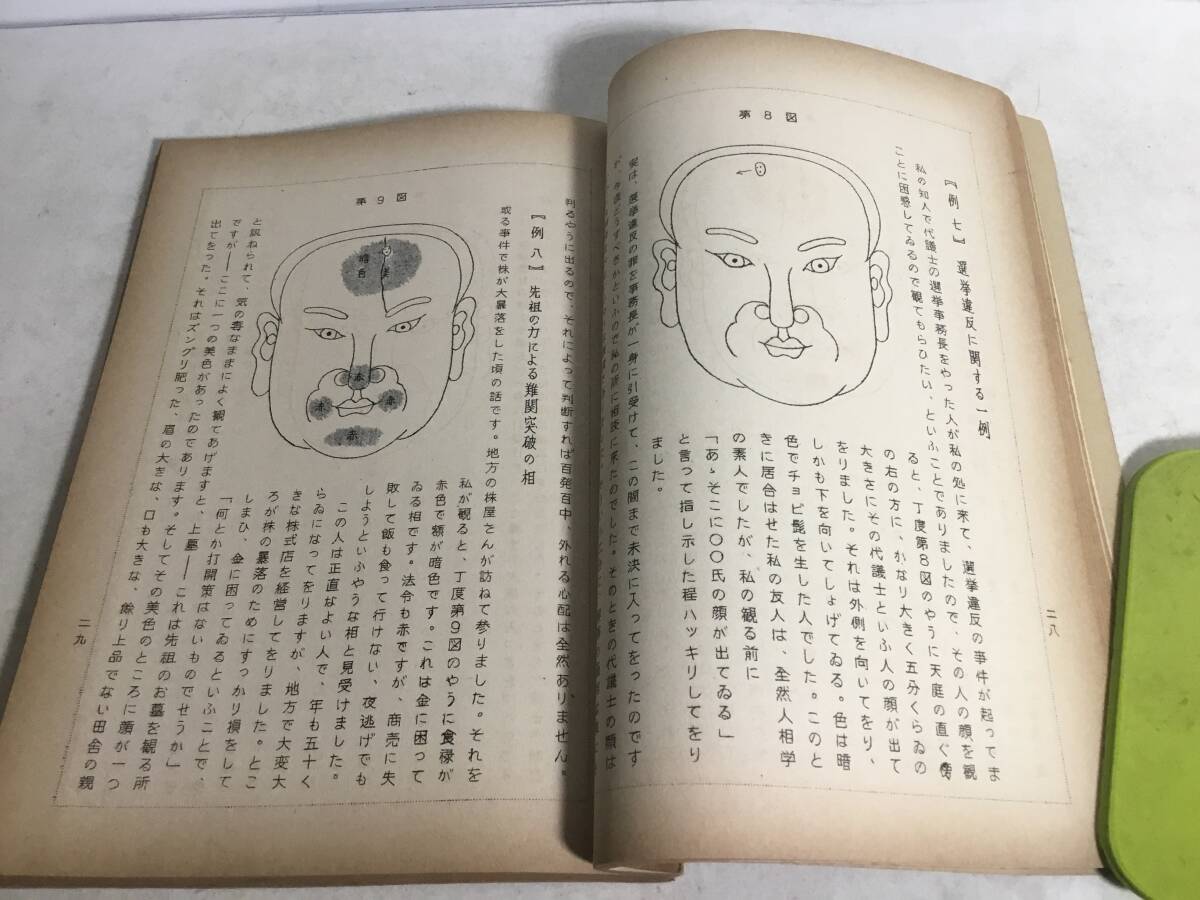 『例 七』 選挙違反に関する一例
私の知人で代議士の選挙事務長をやった人が私の処に来て、選挙違反の事件が起ってま
ことに困惑してゐるので観てもらひたい、といふことでありましたので、その人の顔を観
第8図
ると、丁度第8図のやうに天庭の直ぐ傍
の右の方に、かなり大きく五分くらゐの
大きさにその代議士といふ人の顔が出て
をりました。それは外側を向いてをり、
しかも下を向いてしょげてゐる。色は暗
色でチョビ髭を生した人でした。このと
きに居合はせた私の友人は、全然人相学
の素人でしたが、私の観る前に
「あゝそこに〇〇氏の顔が出てゐる」
と言って指し示した程ハッキリしてをり
ました。
実は、選挙違反の罪を事務長が一身に引受けて、この間まで未決に入ってをったのです
が、今後どうすべきかといふので私の所に相談に来たのでした。そのときの代議士の顔は
二八
判るやうに出るので、それによって判断すれば百発百中、外れる心配は全然ありません。
『例 八』 先祖の力による難関突破の相
或る事件で株が大暴落をした頃の話です。地方の株屋さんが訪ねて参りました。それを
第9図
暗色
美
赤
赤
赤
赤
私が観ると、丁度第9図のやうに食禄が
赤色で額が暗色です。これは金に困って
ゐる相です。法令も赤ですが、商売に失
敗して飯も食って行けない、夜逃げでも
しようといふやうな相と見受けました。
この人は正直なよい人で、年も五十く
らゐになってをりますが、地方で大変大
きな株式店を経営してをりました。とこ
ろが株の暴落のためにすっかり損をして
しまひ、金に困ってゐるといふことで、
「何とか打開策はないものでせうか」
と訊ねられて、気の毒なままによく観てあげますと、上墓――これは先祖のお墓を観る所
ですが――ここに一つの美色があったのであります。そしてその美色のところに顔が一つ
出てをった。それはズングリ肥った、眉の大きな、口も大きな、余り上品でない田舎の親
二九